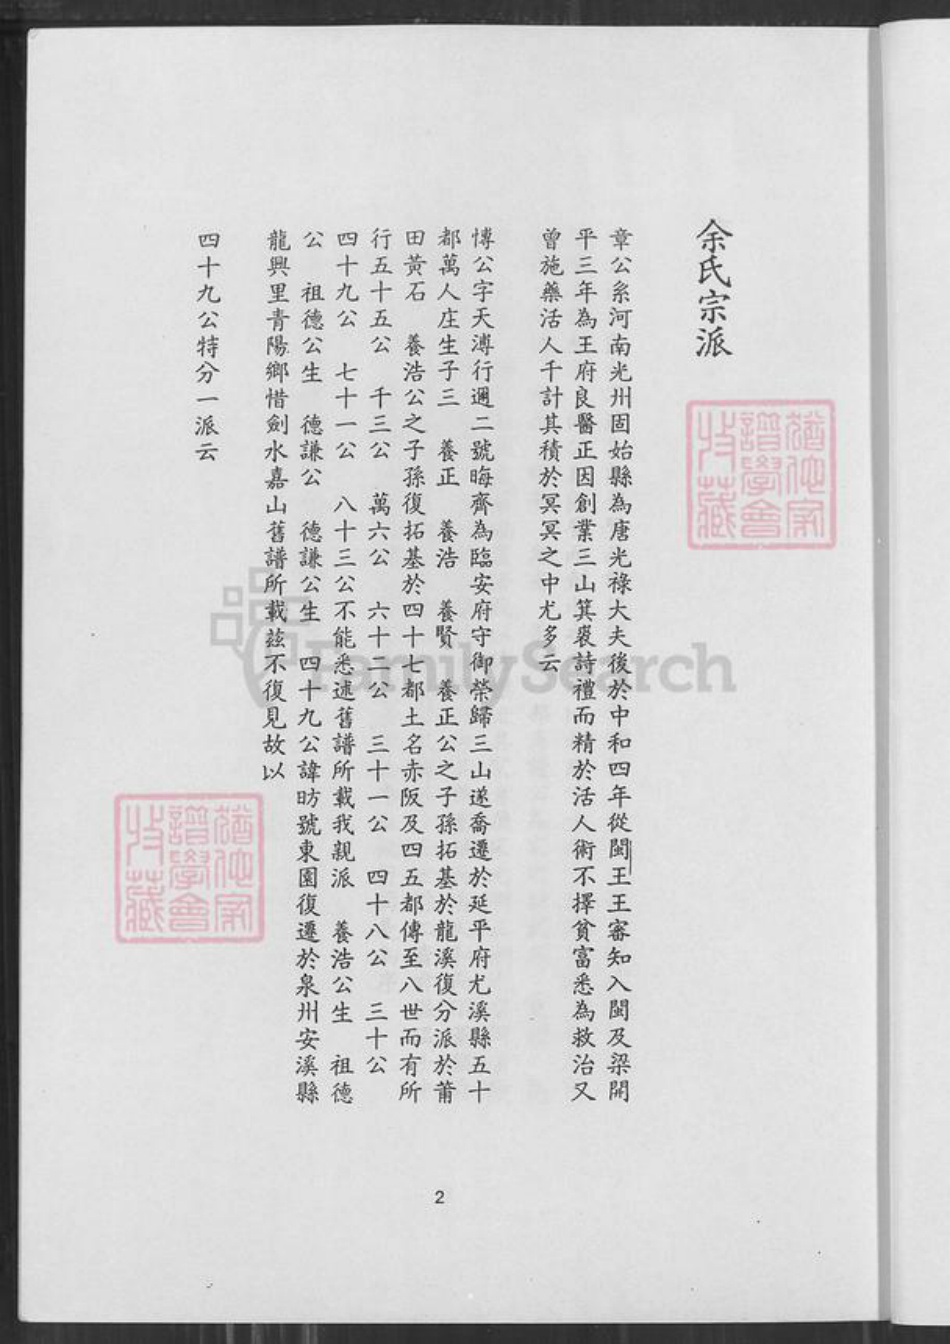 余氏宗派
章公系河南光州固始縣為唐光祿大夫後於中和四年從閩王王審知入閩及梁開
平三年為王府良醫正因創業三山箕裘詩禮而精於活人術不擇貧富悉為救治又
曾施藥活人千計其積於冥冥之中尤多云
博公字天溥行邇二號晦齊為臨安府守御榮歸三山遂喬遷於延平府尤溪縣五十
都萬人庄生子三 養正 養浩 養賢 養正公之子孫拓基於龍溪復分派於莆
田黃石 養浩公之子孫復拓基於四十七都土名赤阪及四五都傳至八世而有所
行五十五公 千三公 萬六公 六十二公 三十一公 四十八公 三十公
四十九公 七十一公 八十三公不能悉述舊譜所載我親派 養浩公生 祖德
公 祖德公生 德謙公 德謙公生 四十九公諱昉號東園復遷於泉州安溪縣
龍興里青陽鄉惜劍水嘉山舊譜所載茲不復見故以
四十九公特分一派云
譜學會
收藏
譜學會
收藏
FamilySearch
2